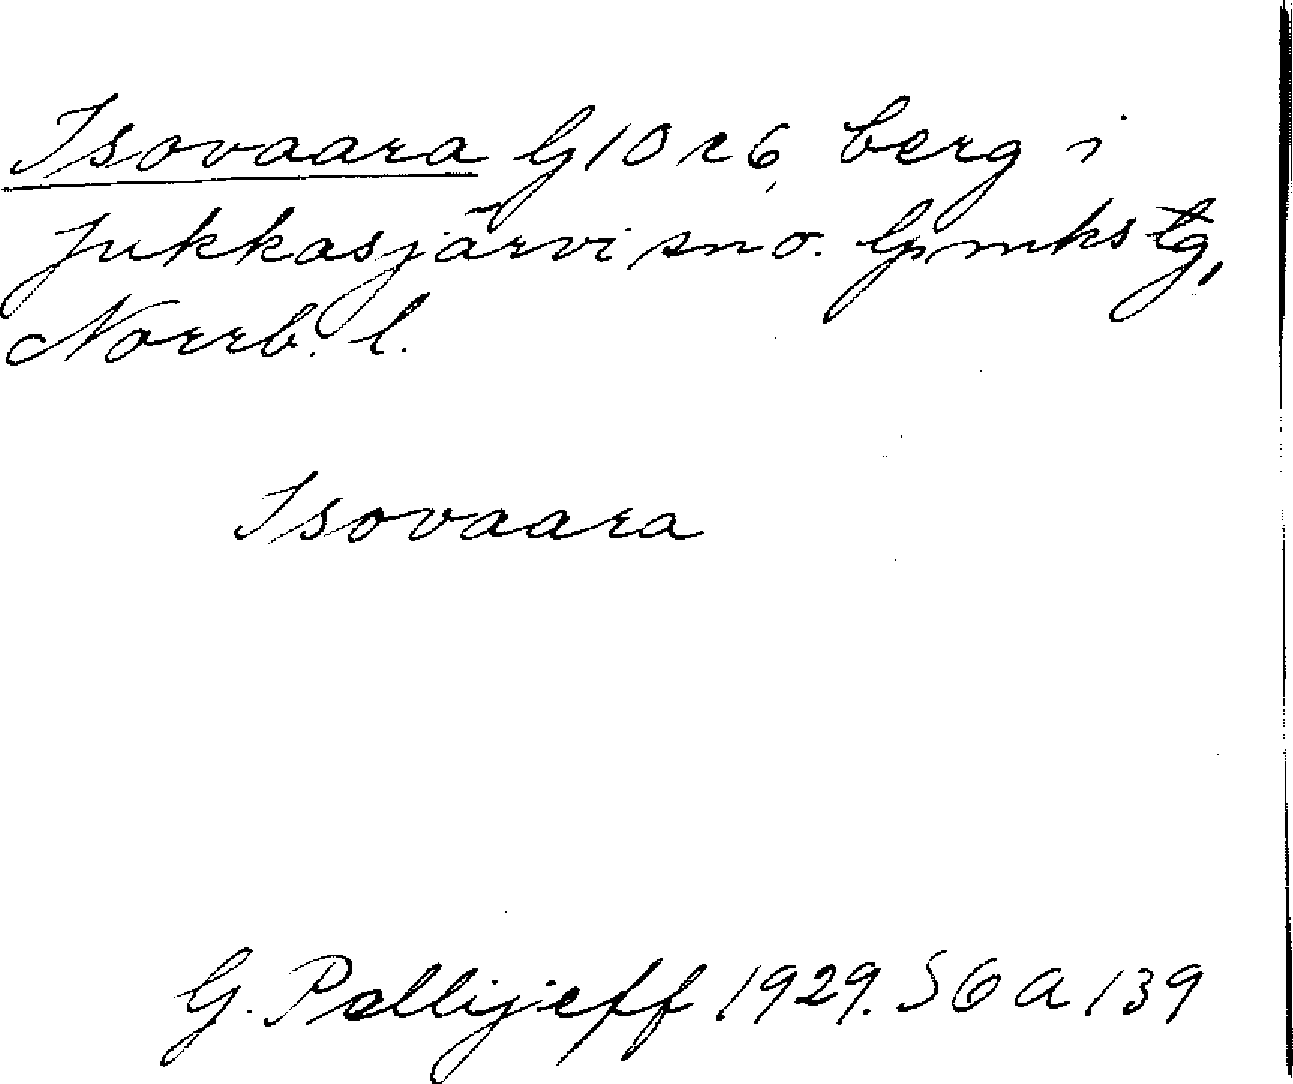 Isovaara G 10 r 6, berg i
Jukkasjärvi sno. Gmkstg,
Norrb. l.
Isovaara
G. Pellijeff 1929. SGA 139